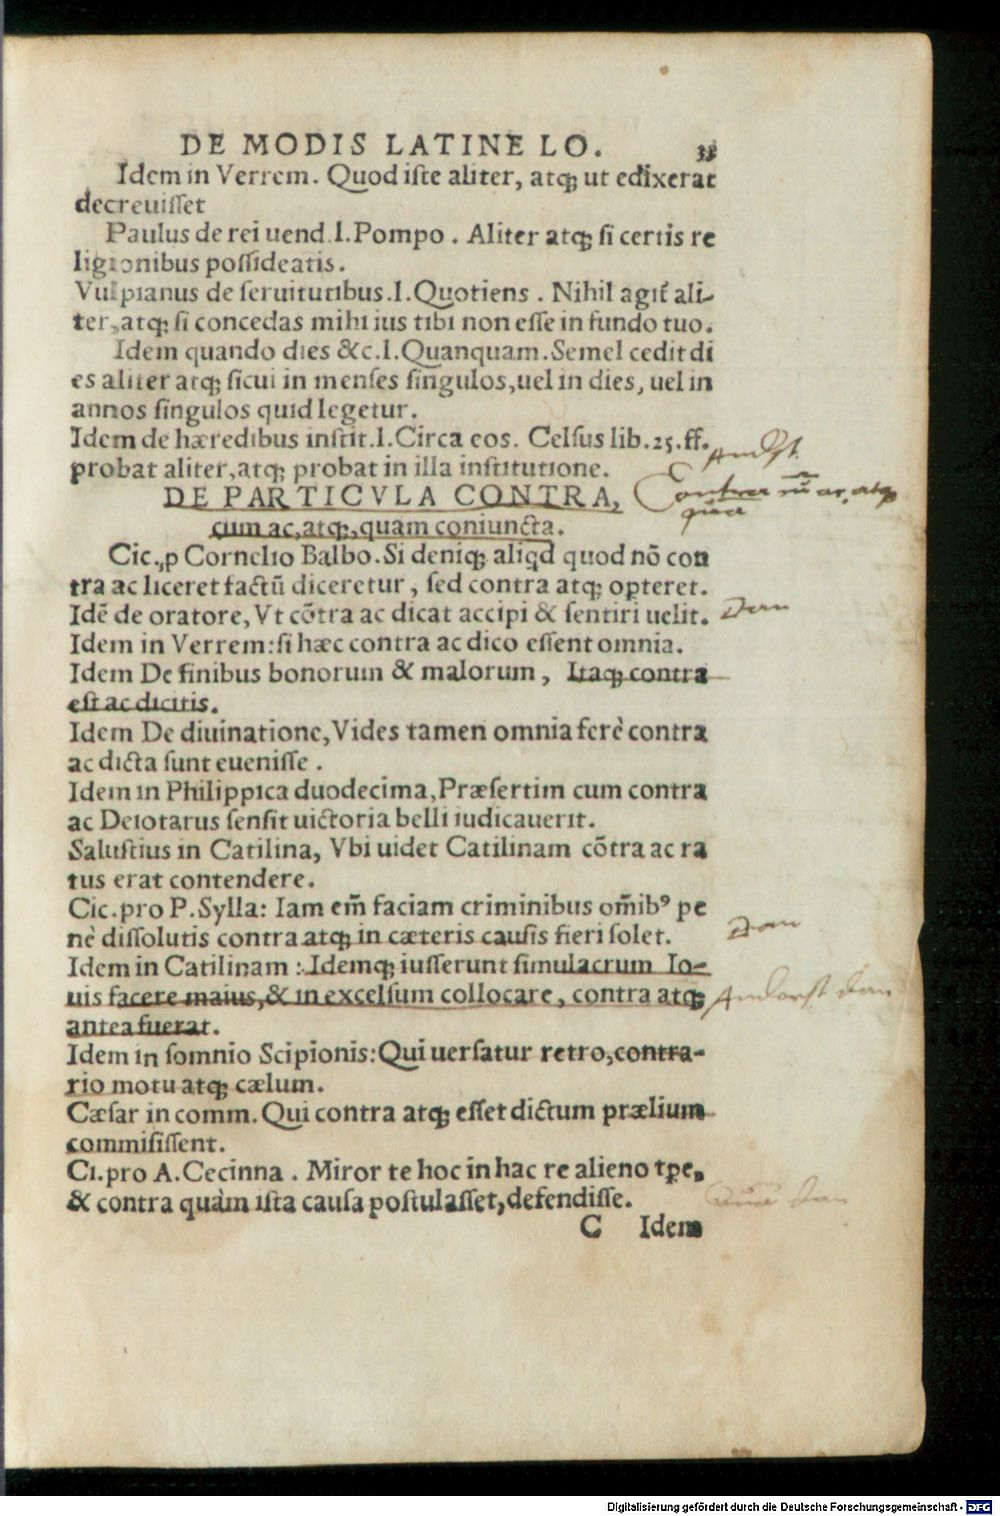 DE MODIS LATINE LO. 33
Idem in Verrem. Quod iſte aliter, atq; ut edixerat
decreuiſſet
Paulus de rei uend.l.Pompo. Aliter atq; ſi certis re
ligionibus poſſideatis.
Vulpianus de ſeruitutibus.l.Quotiens. Nihil agit̃ ali-
ter, atq; ſi concedas mihi ius tibi non eſſe in fundo tuo.
Idem quando dies &c.l.Quanquam.Semel cedit di
es aliter atq; ſicui in menſes ſingulos, uel in dies, uel in
annos ſingulos quid legetur.
Idem de hæredibus inſtit.l.Circa eos. Celſus lib.25.ff.
probat aliter, atq; probat in illa inſtitutione.
DE PARTICVLA CONTRA,
cum ac, atq;, quam coniuncta.
Contra cũ ac, atq;
Cic.,p Cornelio Balbo.Si deniq; aliqd quod nõ con
tra ac liceret factũ diceretur, ſed contra atq; opteret.
Idẽ de oratore, Vt cõtra ac dicat accipi & ſentiri uelit.
Idem in Verrem:ſi hæc contra ac dico eſſent omnia.
Idem De finibus bonorum & malorum, Itaq; contra
eſt ac dicitis.
Idem De diuinatione, Vides tamen omnia ferè contra
ac dicta ſunt eueniſſe.
Idem in Philippica duodecima, Præſertim cum contra
ac Deiotarus ſenſit uictoria belli iudicauerit.
Saluſtius in Catilina, Vbi uidet Catilinam cõtra ac ra
tus erat contendere.
Cic.pro P.Sylla: Iam em̃ faciam criminibus om̃ibꝰ pe
nè diſſolutis contra atq; in cæteris cauſis fieri ſolet.
Idem in Catilinam: Idemq; iuſſerunt ſimulacrum Io-
uis facere maius, & in excelſum collocare, contra atq;
antea fuerat.
Idem in ſomnio Scipionis: Qui uerſatur retro, contra-
rio motu atq; cælum.
Cæſar in comm. Qui contra atq; eſſet dictum prælium
commiſiſſent.
Ci.pro A.Cecinna. Miror te hoc in hac re alieno tpe,
& contra quàm iſta cauſa poſtulaſſet, defendiſſe.
C Idem
Digitalisierung gefördert durch die Deutsche Forschungsgemeinschaft - DFG